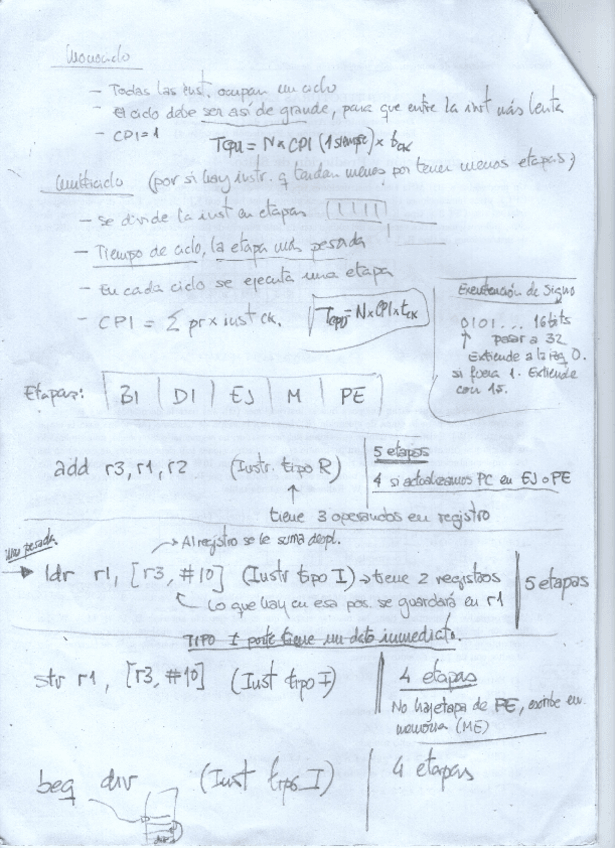 Monociclo
- Todas las inst. ocupan un ciclo
- El ciclo debe ser así de grande, para que entre la inst más lenta
- CPI=1
Tcpu = N x CPI (1 siempre) x tck
Multiciclo (por si hay instr. q tardan menos por tener menos etapas)
- se divide la inst en etapas
- Tiempo de ciclo, la etapa más pesada
- En cada ciclo se ejecuta una etapa
- CPI = Σ pr x inst ck.
Tcpu = N x CPI x tck
Extensión de Signo
0101... 16bits
↑ pasar a 32
Extiende a la izq 0.
si fuera 1. Extiende
con 1s.
Etapas: BI | DI | EJ | M | PE
add r3, r1, r2 (Instr. tipo R)
↑
tiene 3 operandos en registro
5 etapas
4 si actualizamos PC en EJ o PE
Más pesada
→ Al registro se le suma despl.
→ ldr r1, [r3, #10] (Instr tipo I) → tiene 2 registros
Lo que hay en esa pos. se guardará en r1
5 etapas
TIPO I porte tiene un dato inmediato.
str r1, [r3, #10] (Inst tipo I)
4 etapas
No hay etapa de PE, escribe en
memoria (ME)
beq (Inst tipo I)
4 etapas